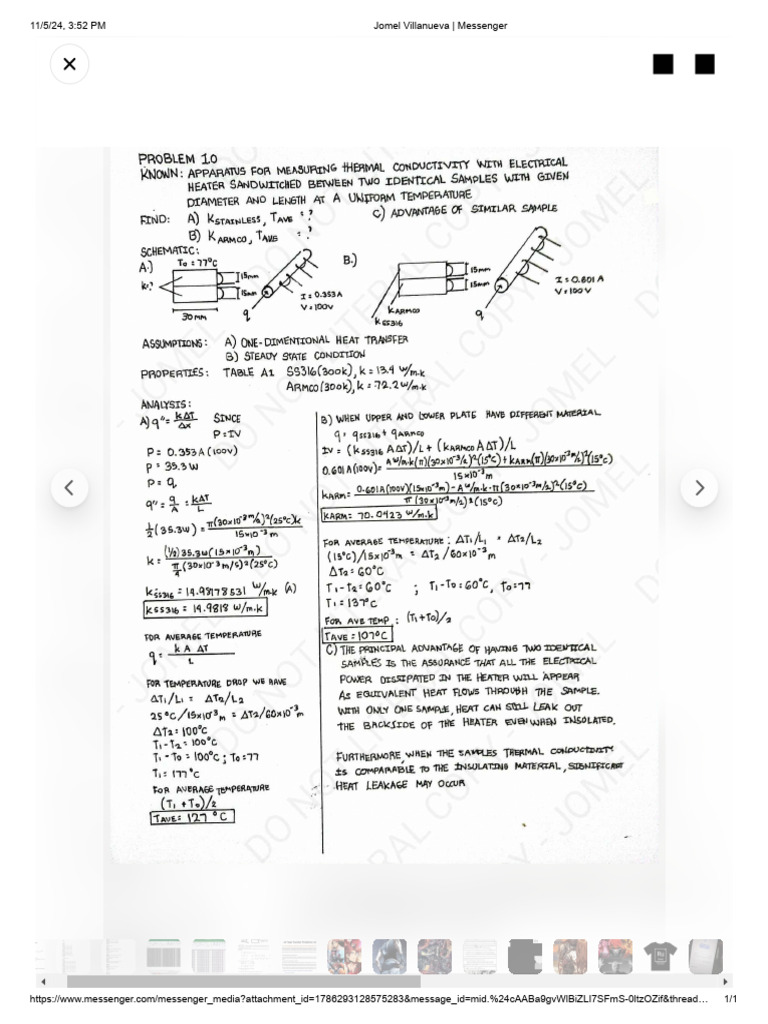 11/5/24, 3:52 PM
Jomel Villanueva | Messenger
PROBLEM 10
KNOWN: APPARATUS FOR MEASURING THERMAL CONDUCTIVITY WITH ELECTRICAL
HEATER SANDWITCHED BETWEEN TWO IDENTICAL SAMPLES WITH GIVEN
DIAMETER AND LENGTH AT A UNIFORM TEMPERATURE
FIND: A) KSTAINLESS, TAVE = ?
C) ADVANTAGE OF SIMILAR SAMPLE
B) KARMCO, TAVE = ?
SCHEMATIC:
A.)
T0 = 77°C
k?
15mm
15mm
30 MM
q
I = 0.353 A
V = 100V
B.)
15mm
15mm
KARMCO
KSS316
q
I = 0.601 A
V = 100V
ASSUMPTIONS: A) ONE-DIMENTIONAL HEAT TRANSFER
B) STEADY STATE CONDITION
PROPERTIES: TABLE A1 SS316 (300k), k = 13.4 W/m.k
ARMCO (300k), k = 72.2 W/m.k
ANALYSIS:
A) q" = kΔT/Δx SINCE
P = IV
P = 0.353 A (100V)
P = 35.3 W
P = q
q" = q/A = kΔT/L
1/2 (35.3W) = π(30x10⁻³m/2)²(25°C)k / 15x10⁻³ m
k = (1/2) 35.3W (15x10⁻³m) / π/4 (30x10⁻³ m/s)²(25°C)
KSS316 = 14.98178531 W/m.k (A)
KSS316 = 14.9818 W/m.k
FOR AVERAGE TEMPERATURE
q = k A ΔT / L
FOR TEMPERATURE DROP WE HAVE
ΔT1/L1 = ΔT2/L2
25°C/15x10⁻³m = ΔT2/60x10⁻³m
ΔT2 = 100°C
T1 - T2 = 100°C
T1 - T0 = 100°C ; T0 = 77
T1 = 177°C
FOR AVERAGE TEMPERATURE
(T1 + T0)/2
TAVE = 127 °C
B) WHEN UPPER AND LOWER PLATE HAVE DIFFERENT MATERIAL
q = qSS316 + qARMCO
IV = (KSS316 AΔT)/L + (KARMCO AΔT)/L
0.601A(100V) = A W/m.k (π)(30x10⁻³/2)²(15°C) + KARM(π)(30x10⁻³m/2)²(15°C) / 15x10⁻³m
KARM = 0.601A(100V)(15x10⁻³m) - A W/m.k - π(30x10⁻³m/2)²(15°C) / π(30x10⁻³m/2)²(15°C)
KARM = 70.0423 W/m.k
FOR AVERAGE TEMPERATURE : ΔT1/L1 = ΔT2/L2
(15°C)/15x10⁻³m = ΔT2/60x10⁻³m
ΔT2 = 60°C
T1 - T2 = 60°C ; T1 - T0 = 60°C, T0 = 77
T1 = 137°C
FOR AVE TEMP : (T1+T0)/2
TAVE = 107°C
C) THE PRINCIPAL ADVANTAGE OF HAVING TWO IDENTICAL
SAMPLES IS THE ASSURANCE THAT ALL THE ELECTRICAL
POWER DISSIPATED IN THE HEATER WILL APPEAR
AS EQUIVALENT HEAT FLOWS THROUGH THE SAMPLE.
WITH ONLY ONE SAMPLE, HEAT CAN STILL LEAK OUT
THE BACKSIDE OF THE HEATER EVEN WHEN INSOLATED.
FURTHERMORE, WHEN THE SAMPLES THERMAL CONDUCTIVITY
IS COMPARABLE TO THE INSULATING MATERIAL, SIGNIFICANT
HEAT LEAKAGE MAY OCCUR
https://www.messenger.com/messenger_media?attachment_id=1786293128575283&message_id=mid.%24cAABa9gvWlBiZLI7SFmS-0ItzOZif&thread…
1/1